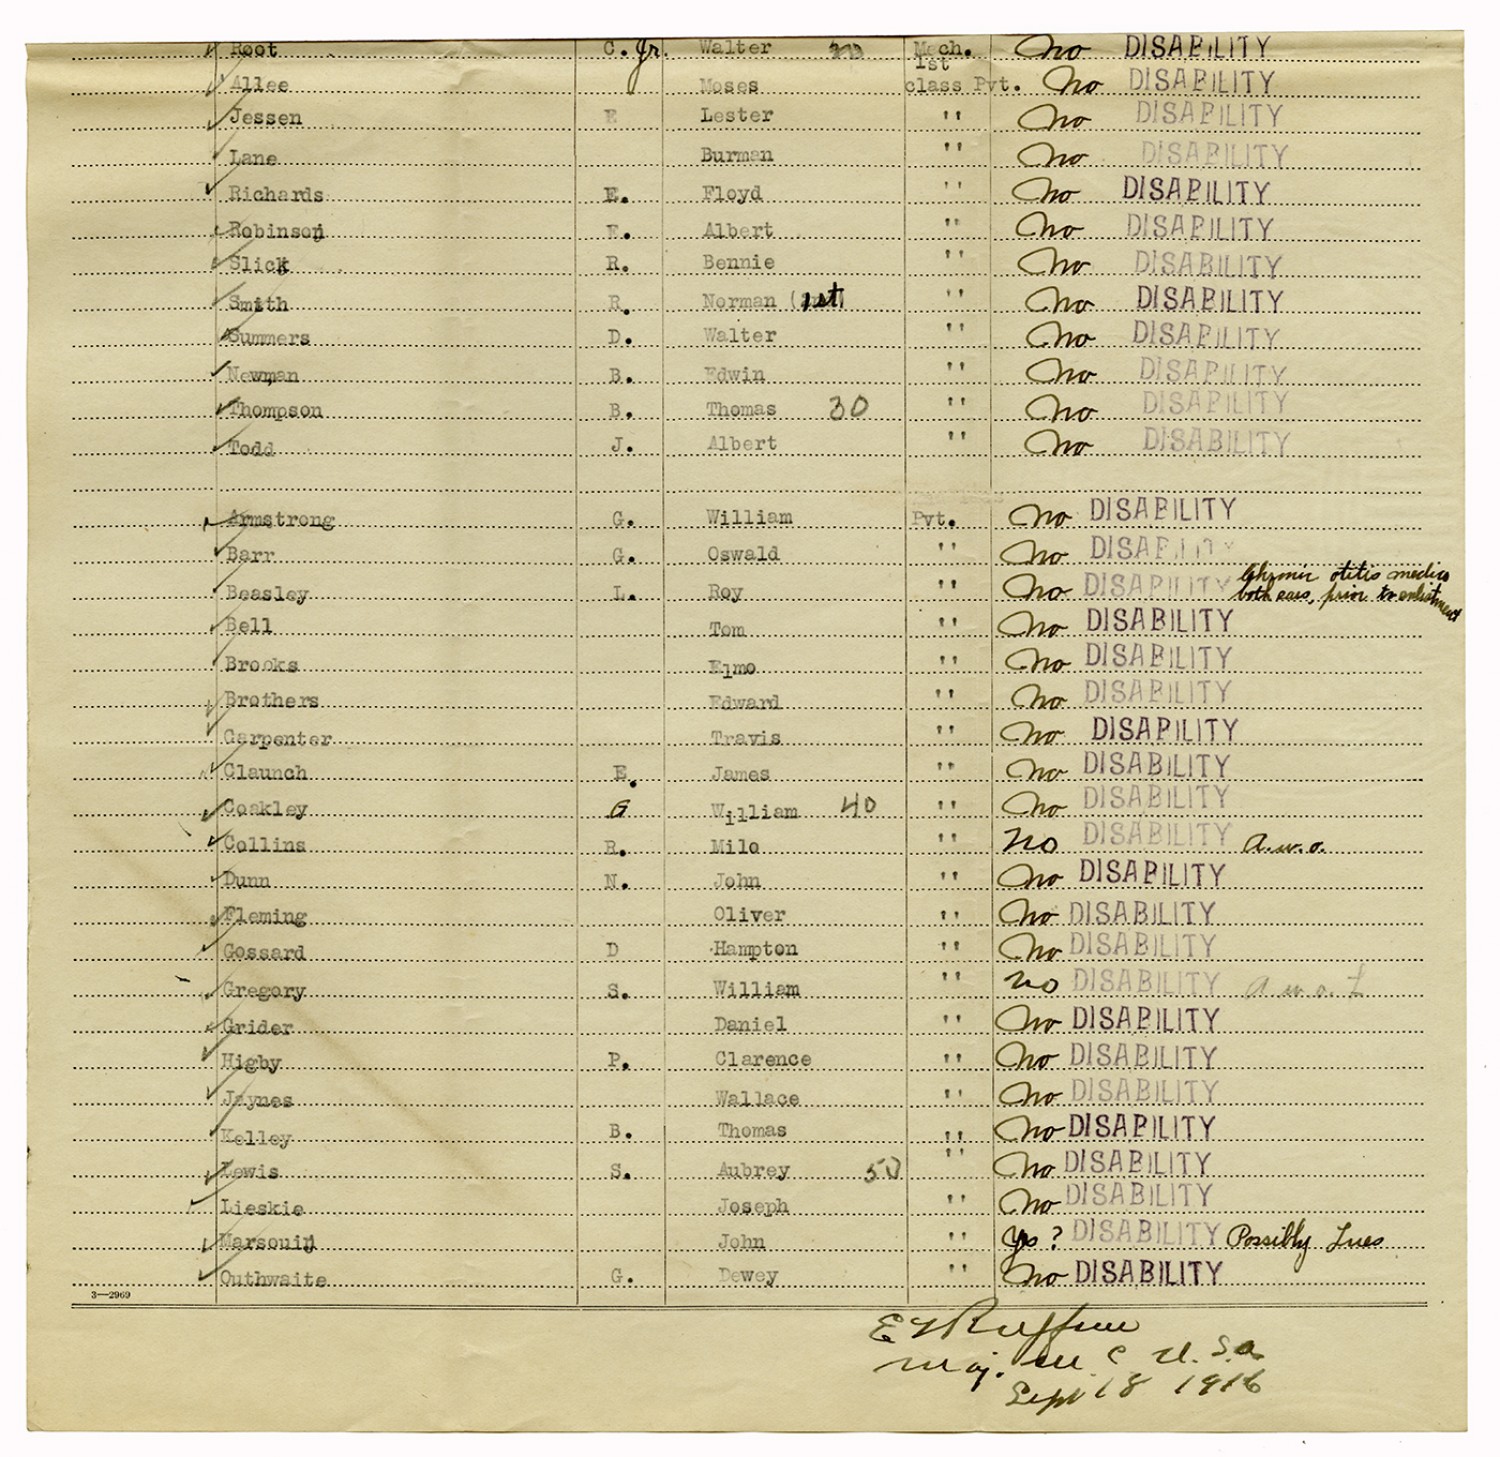 Root C. Jr. Walter 20 Mech. No DISABILITY
Allee Moses 1st class Pvt. No DISABILITY
Jessen E Lester " No DISABILITY
Lane Burman " No DISABILITY
Richards E. Floyd " No DISABILITY
Robinson E. Albert " No DISABILITY
Slick R. Bennie " No DISABILITY
Smith R. Norman (1st) " No DISABILITY
Summers D. Walter " No DISABILITY
Newman B. Edwin " No DISABILITY
Thompson B. Thomas 30 " No DISABILITY
Todd J. Albert " No DISABILITY
Armstrong G. William Pvt. No DISABILITY
Barr G. Oswald " No DISABILITY
Beasley L. Roy " No DISABILITY Chronic otitis media
both ears, prior to enlistment
Bell Tom " No DISABILITY
Brooks Elmo " No DISABILITY
Brothers Edward " No DISABILITY
Carpenter Travis " No DISABILITY
Claunch E. James " No DISABILITY
Coakley G William 40 " No DISABILITY
Collins R. Milo " No DISABILITY a.w.o.
Dunn N. John " No DISABILITY
Fleming Oliver " No DISABILITY
Gossard D Hampton " No DISABILITY
Gregory S. William " No DISABILITY a.w.o.L
Grider Daniel " No DISABILITY
Higby P. Clarence " No DISABILITY
Jaynes Wallace " No DISABILITY
Kelley B. Thomas " No DISABILITY
Lewis S. Aubrey 50 " No DISABILITY
Lieskie Joseph " No DISABILITY
Marsouin John " Yes? DISABILITY Possibly Lues
Outhwaite G. Dewey " No DISABILITY
3—2969
Maj. M C U.S.a.
Sept 18 1916